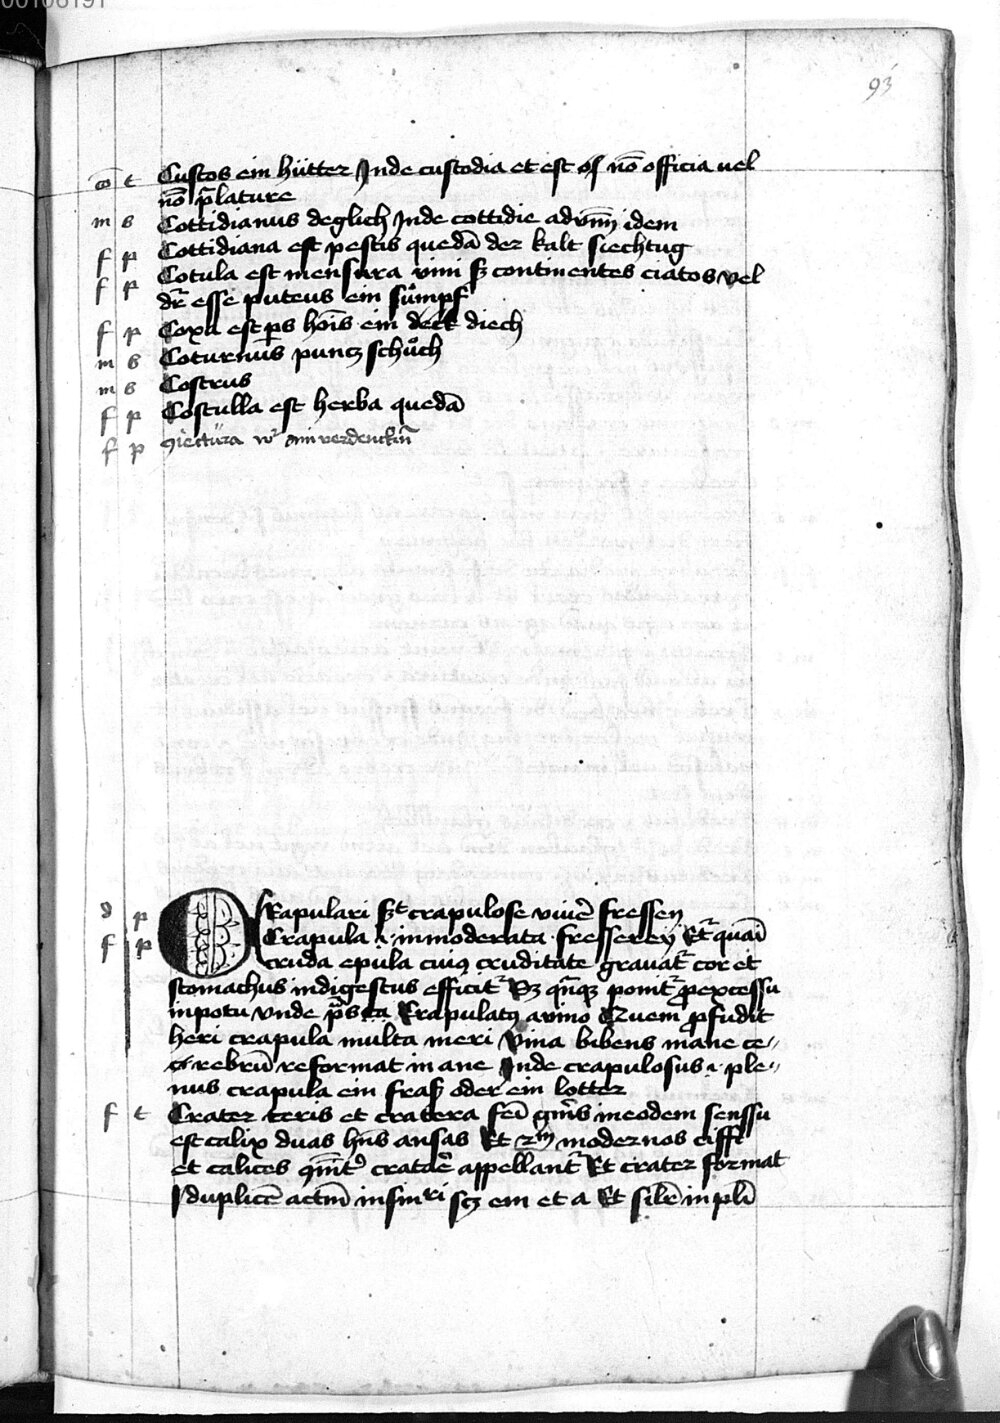 00106191
93
Custos ein hütter Inde custodia et est os nō officia uel
nō p̄lature
m s Cottidianus deglich Inde cottidie adu idem
f p Cottidiana est pestis quedā der kalt siechtug
f p Cotula est mensura vini continentes ciatos vel
dr̄ esse puteus ein sůmpf
f p Coxa est ps hoīs ein deck diech
m s Coturnus puntz schůch
m s Costrus
f p Costulla est herba quedā
f p ꝯiectura verdenckin
d p Crapulari crapulose viuē fressen
f p Crapula .i. inmoderata fresserey Et quasi
cruda epula cuiꝰ cruditate grauat cor et
stomachus indigestus efficit Et qn̄qꝫ ponit p excessu
in potu vnde p̄s ca Crapulatꝰ a vino Quem pfudit
heri crapula multa meri Vina bibens mane ce//
rebrū reformat in ane Inde crapulosus .i. ple//
nus crapula ein fraß oder ein lotter
f t Crater teris et cratera fēi gn̄is in eodem senssu
est calix duas hn̄s ansas Et modernos ciffi
et calices appellant Et crater format
duplicē actm̄ in singri scꝫ em et a Et silr̄ in plī